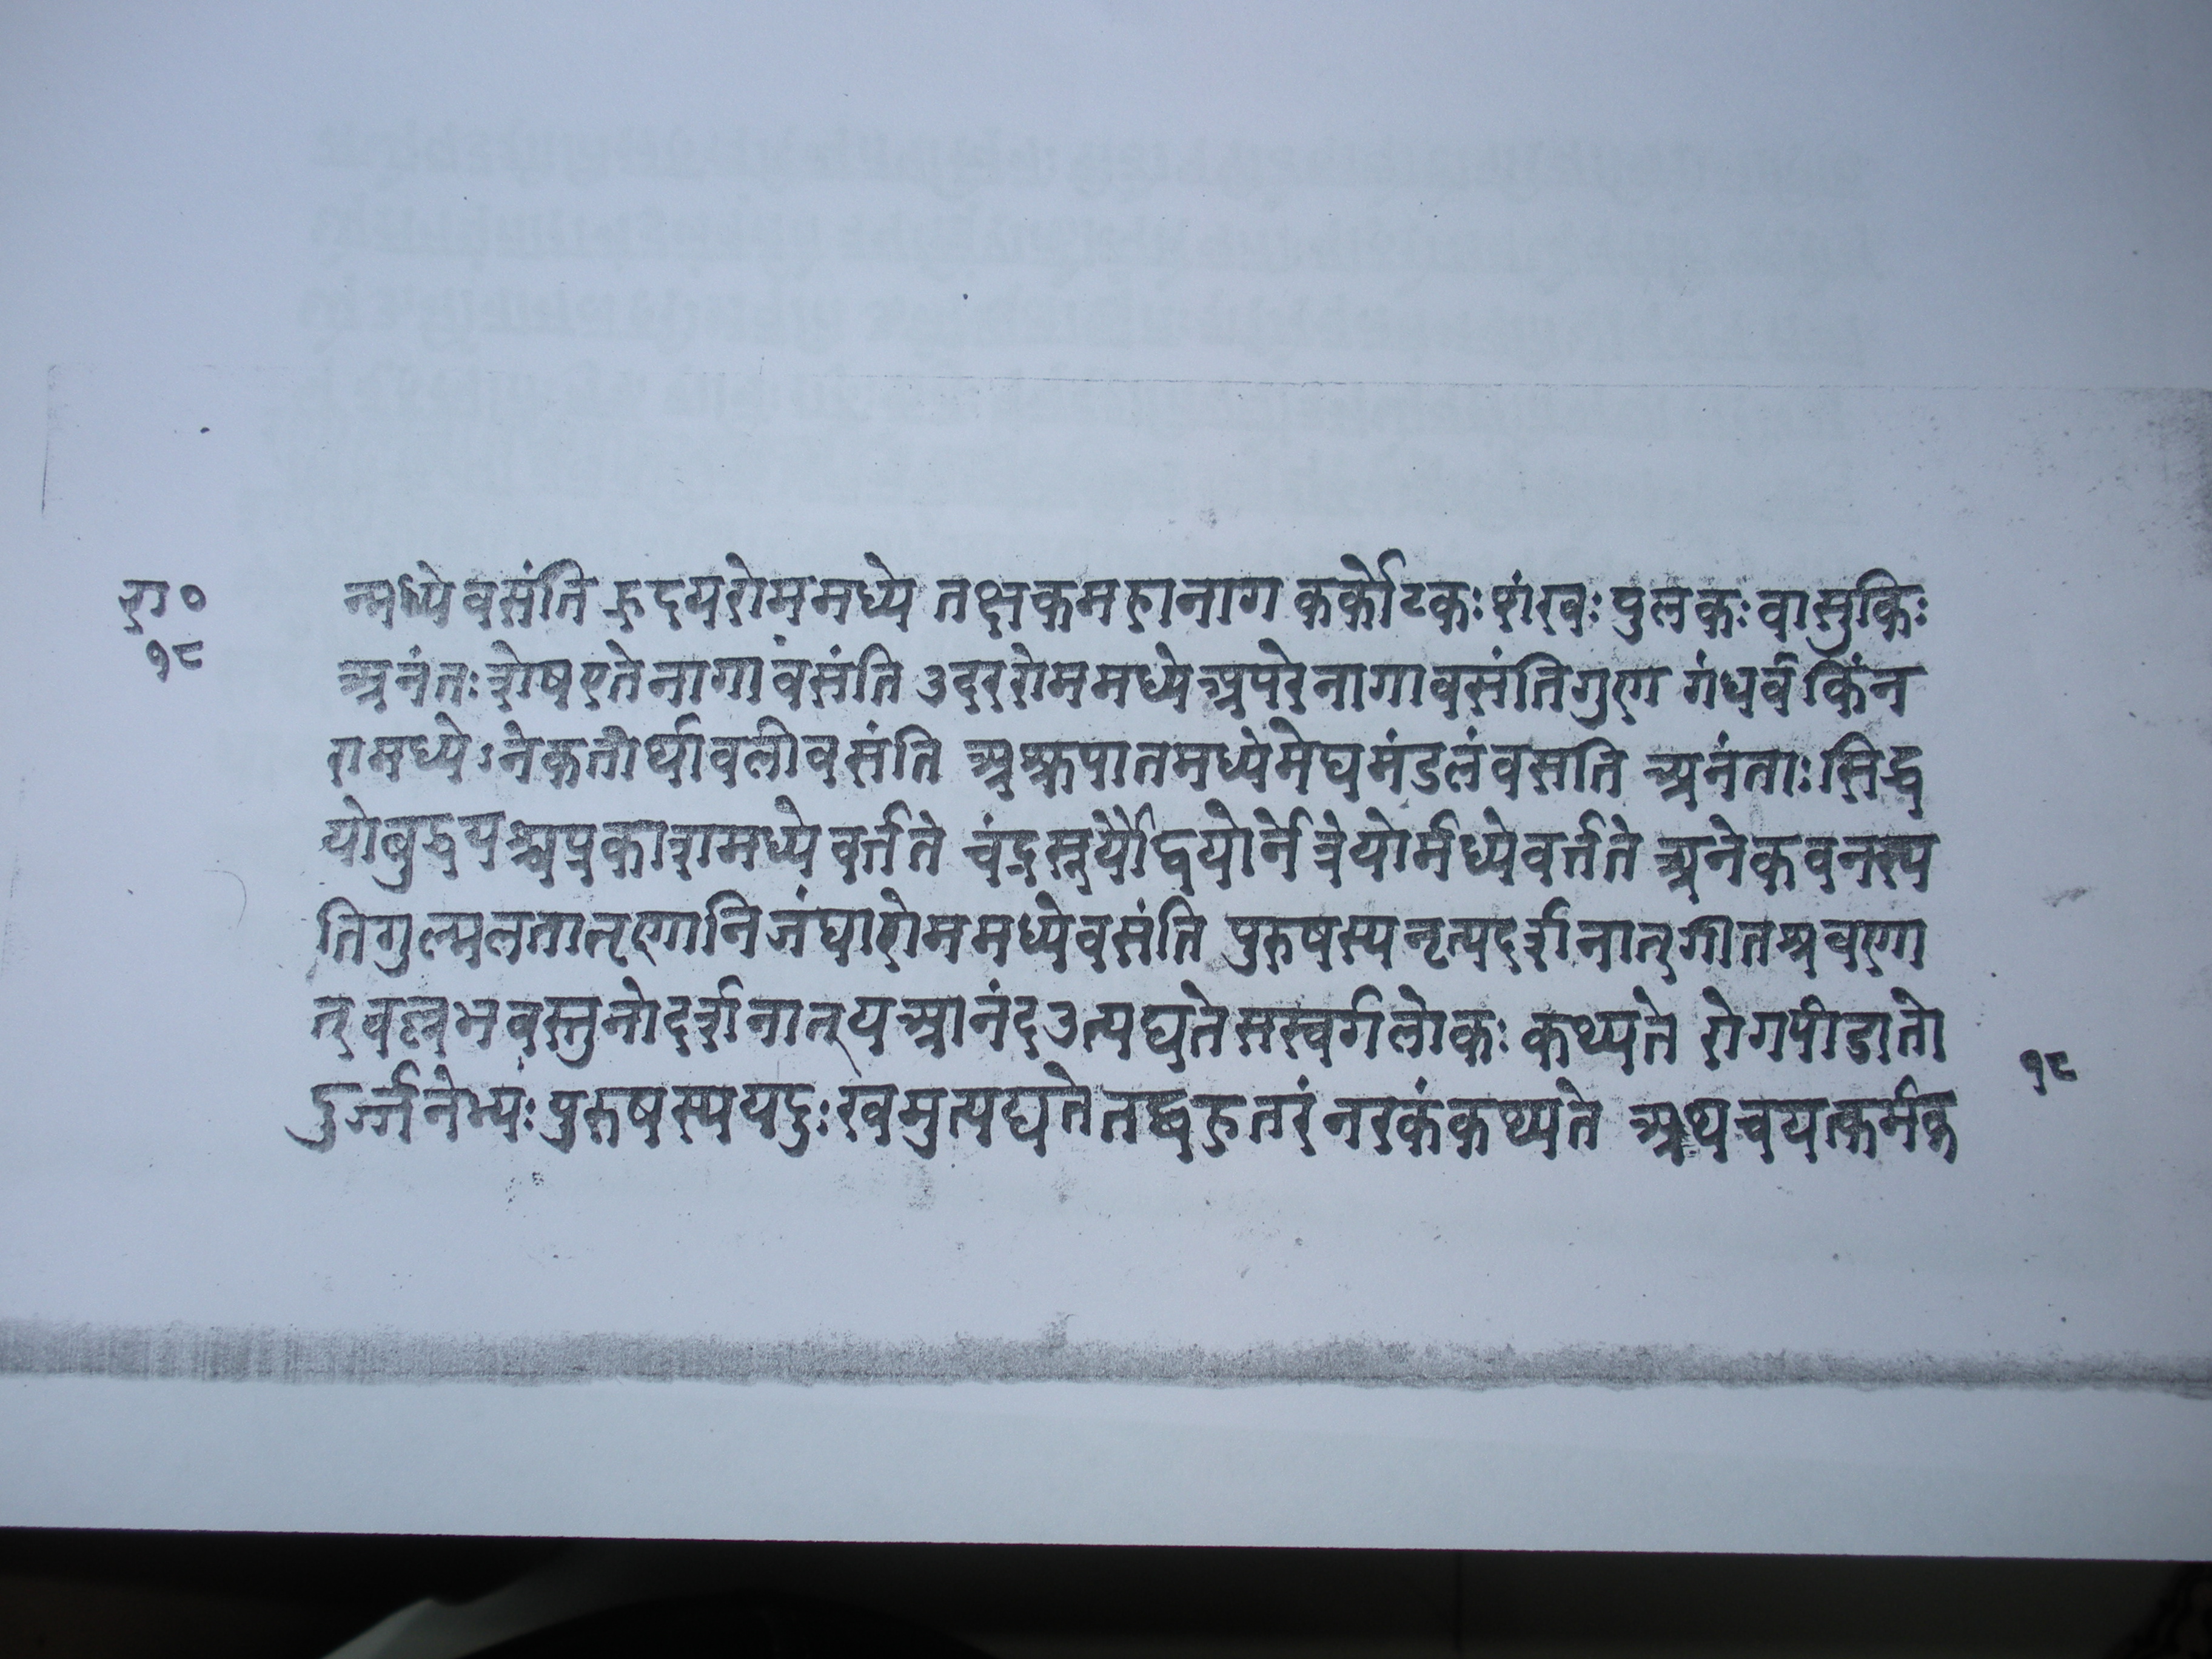 रा०
१८
न्मध्ये वसंति हृदयरोममध्ये तक्षकमहानाग कर्कोटकः शंखः पुलकः वासुकिः
अनंतः शेष एते नागा वसंति उदररोममध्ये अपरे नागा वसंति गुण गंधर्व किंन
रा मध्ये ऽनेकतीर्थावली वसंति अश्रुपातमध्ये मेघमंडलं वसति अनंताः सिद्ध
यो बुद्धयश्च प्रकाशमध्ये वर्त्तते चंद्रसूर्यौ द्वयोर्ने त्रेयोर्मध्ये वर्त्तते अनेक वनस्प
तिगुल्मलतातृणानि जंघारोममध्ये वसंति पुरुषस्य नृत्यदर्शनात् गीतश्रवणा
त् वल्लभवस्तुनो दर्शनात् य आनंद उत्पद्यते स स्वर्गलोकः कथ्यते रोगपीडातो
दुर्ज्जनेभ्यः पुरुषस्य यदुःखमुत्पद्यते तद्बहुतरं नरकं कथ्यते अथ च यत्कर्म क्रि
१८